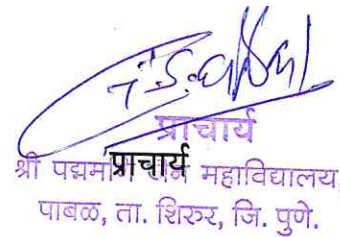 प्राचार्य
प्राचार्य
श्री पद्ममणी जैन महाविद्यालय
पाबळ, ता. शिरुर, जि. पुणे.